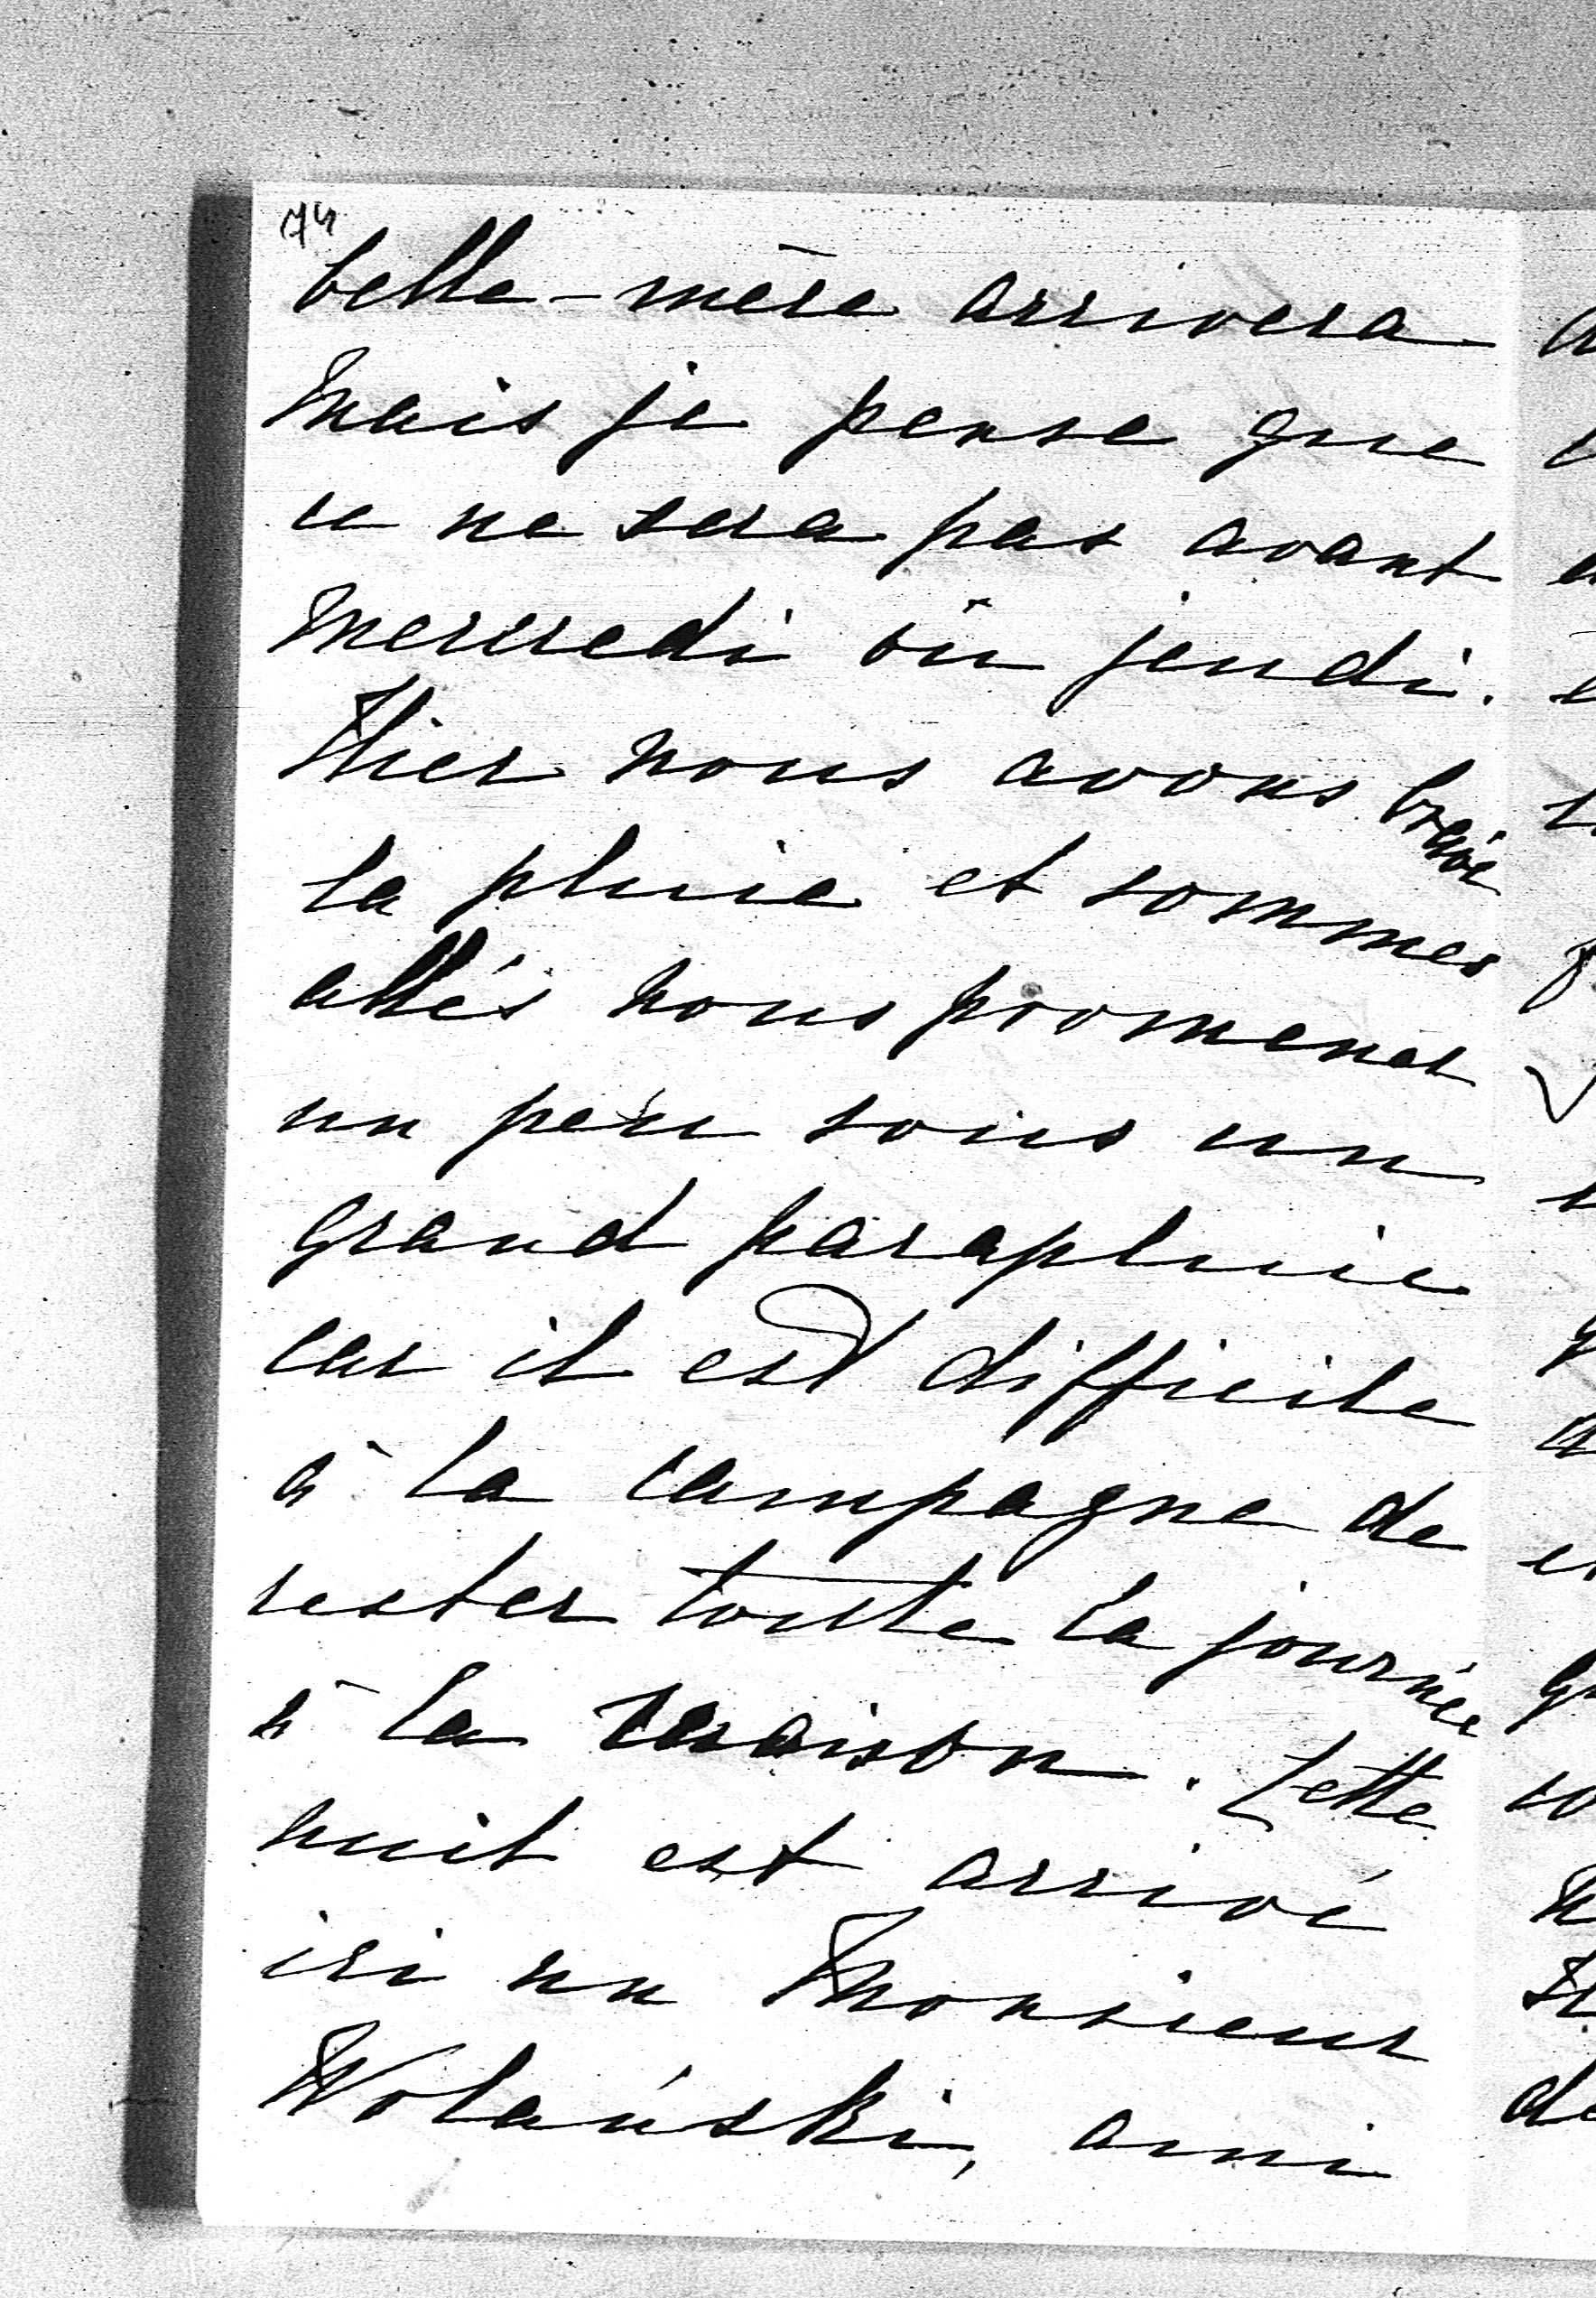 74
belle-mère arrivera
mais je pense que
ce ne sera pas avant
mercredi où jeudi.
Hier nous avons bravé
la pluie et sommes
allés nous promener
un peu sous un
grand parapluie
car il est difficile
à la campagne de
rester toute la journée
à la maison. Cette
nuit est arrivé
ici un Monsieur
Wolański, ami